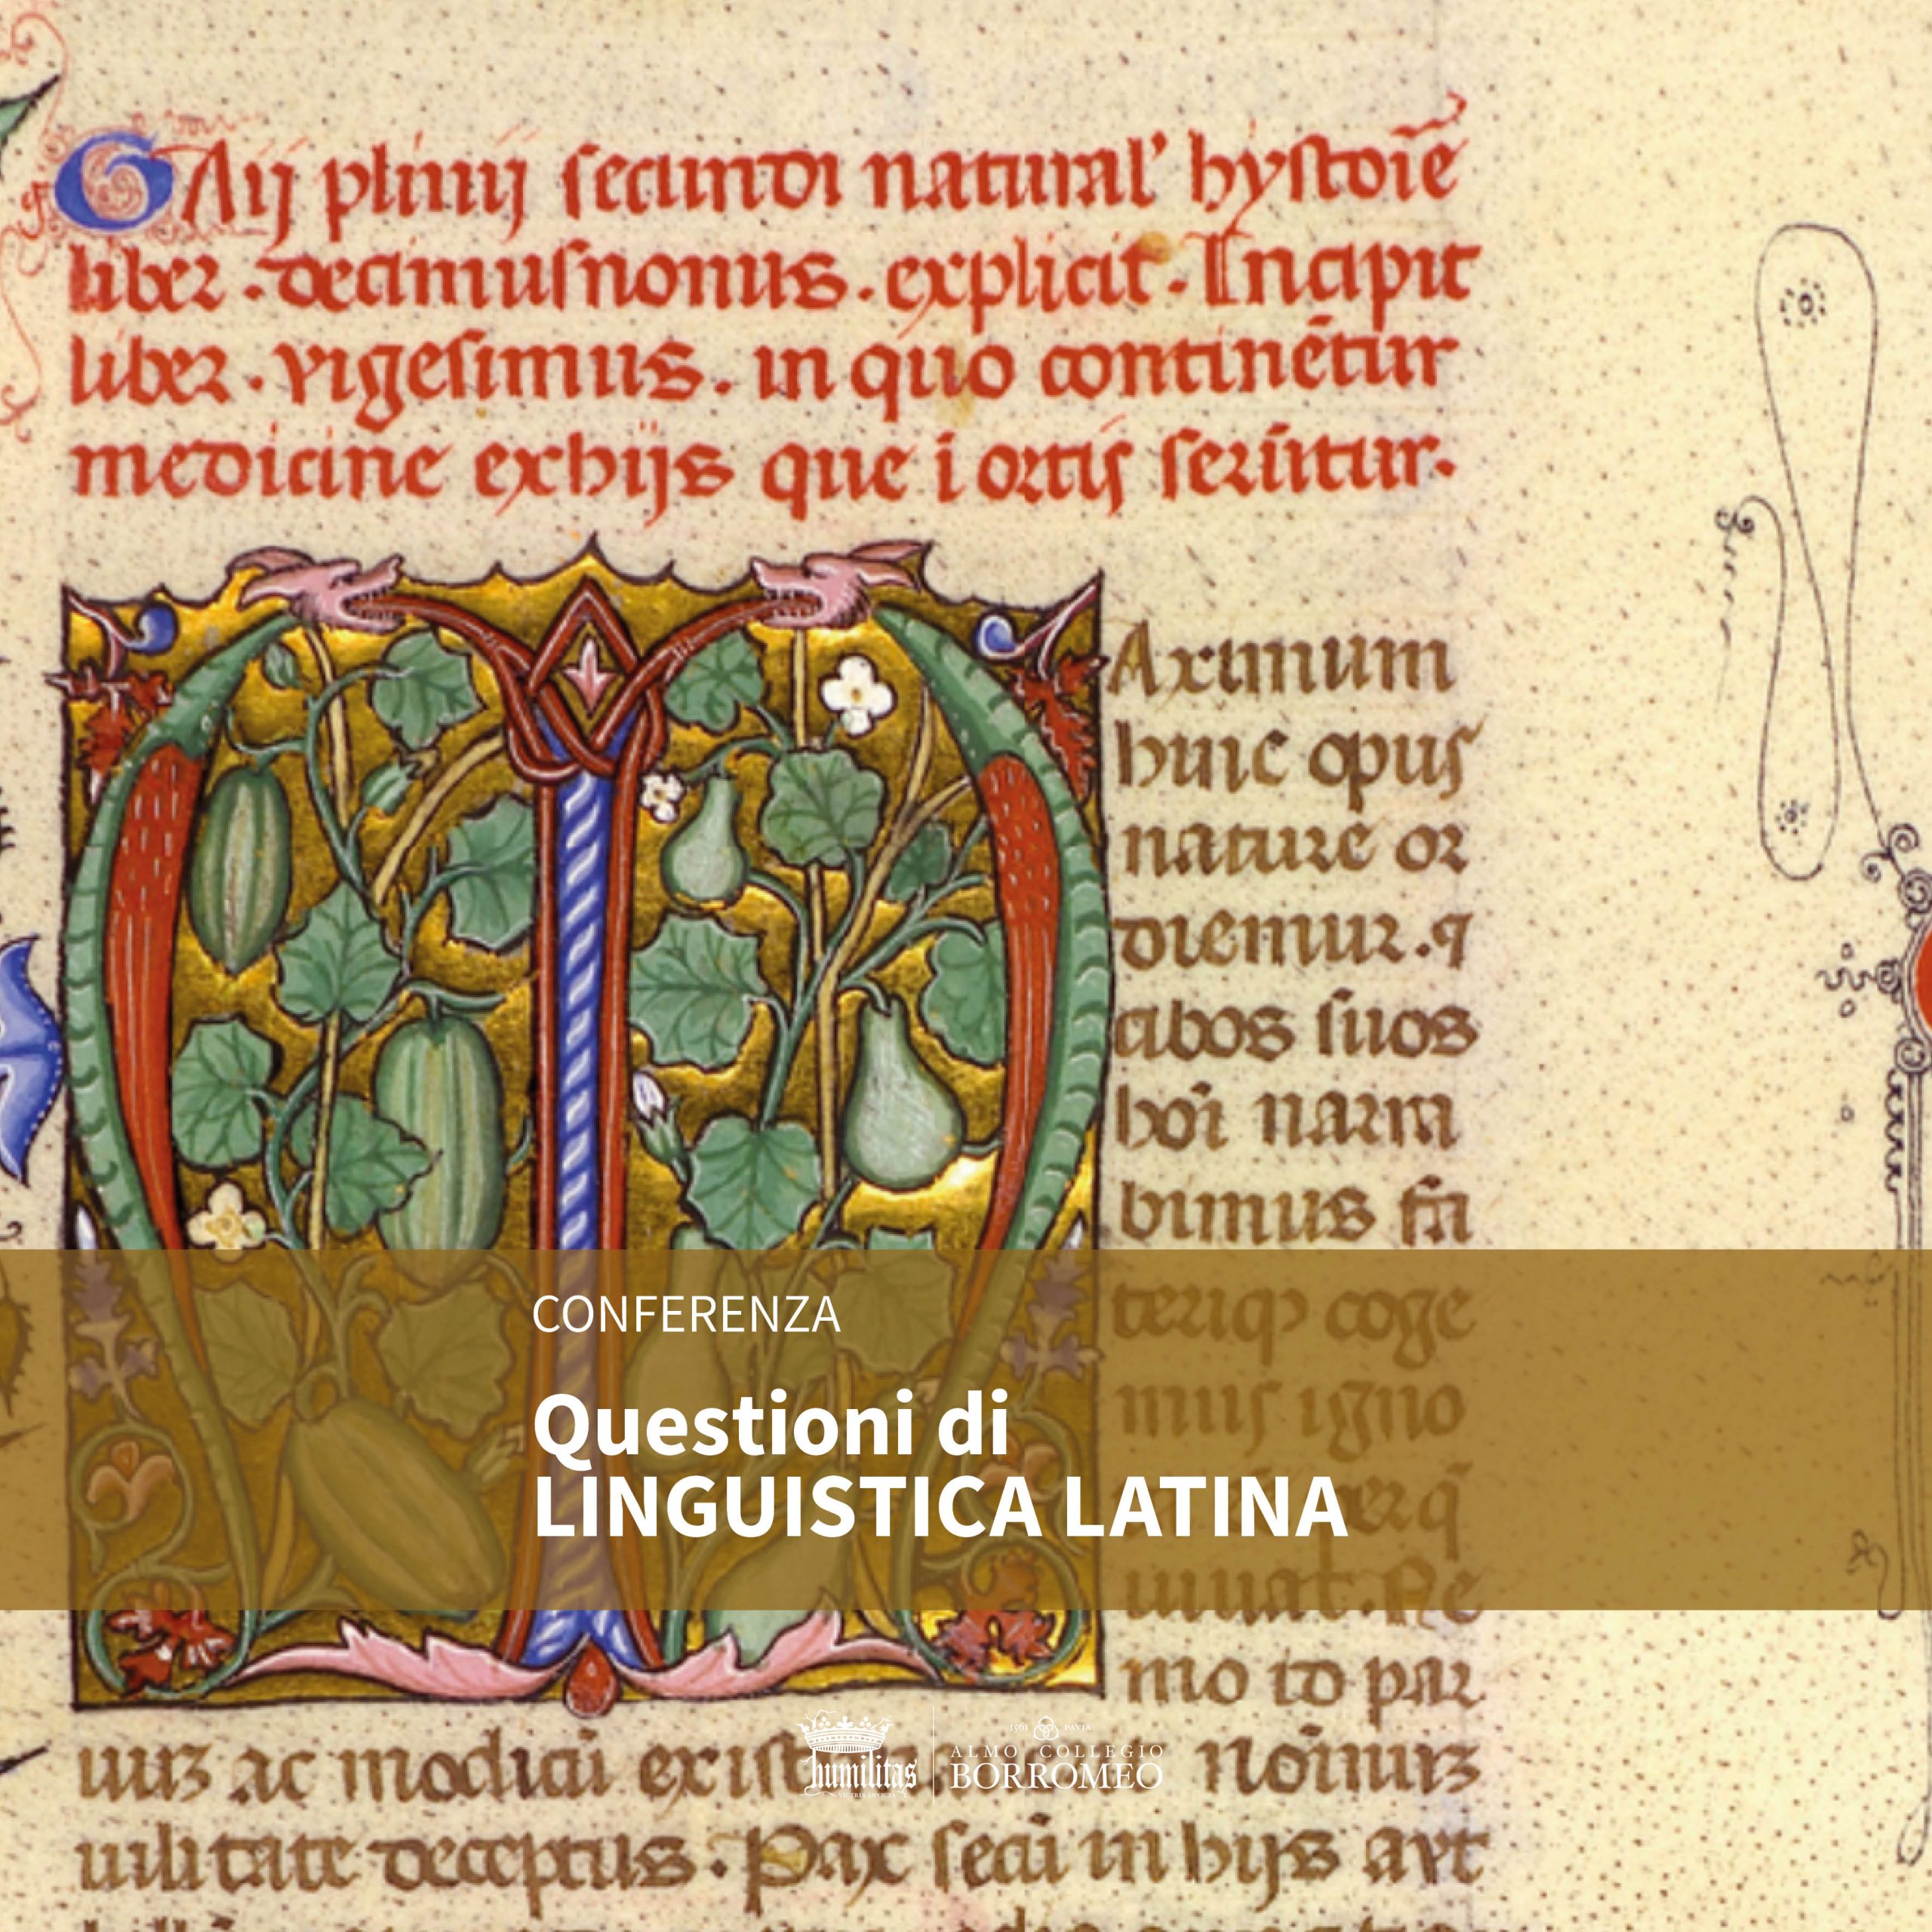 GAij plinij secundi natural' hystoīe
liber · decimusnonus · explicit · Incipit
liber · vigesimus · in quo continētur
medicine exhijs que ī ortis serūtur.
Aximum
huic opus
nature or
diemur · ⁊
cibos suos
hoī narra
bimus fa
teriqꝫ coge
mus igno
uiuat · Ne
mo id par
uuꝫ ac modici noīnuꝫ
uilitate deceptus · Pax seci in hijs aut
CONFERENZA
Questioni di
LINGUISTICA LATINA
humilitas
1561 PAVIA
ALMO COLLEGIO
BORROMEO